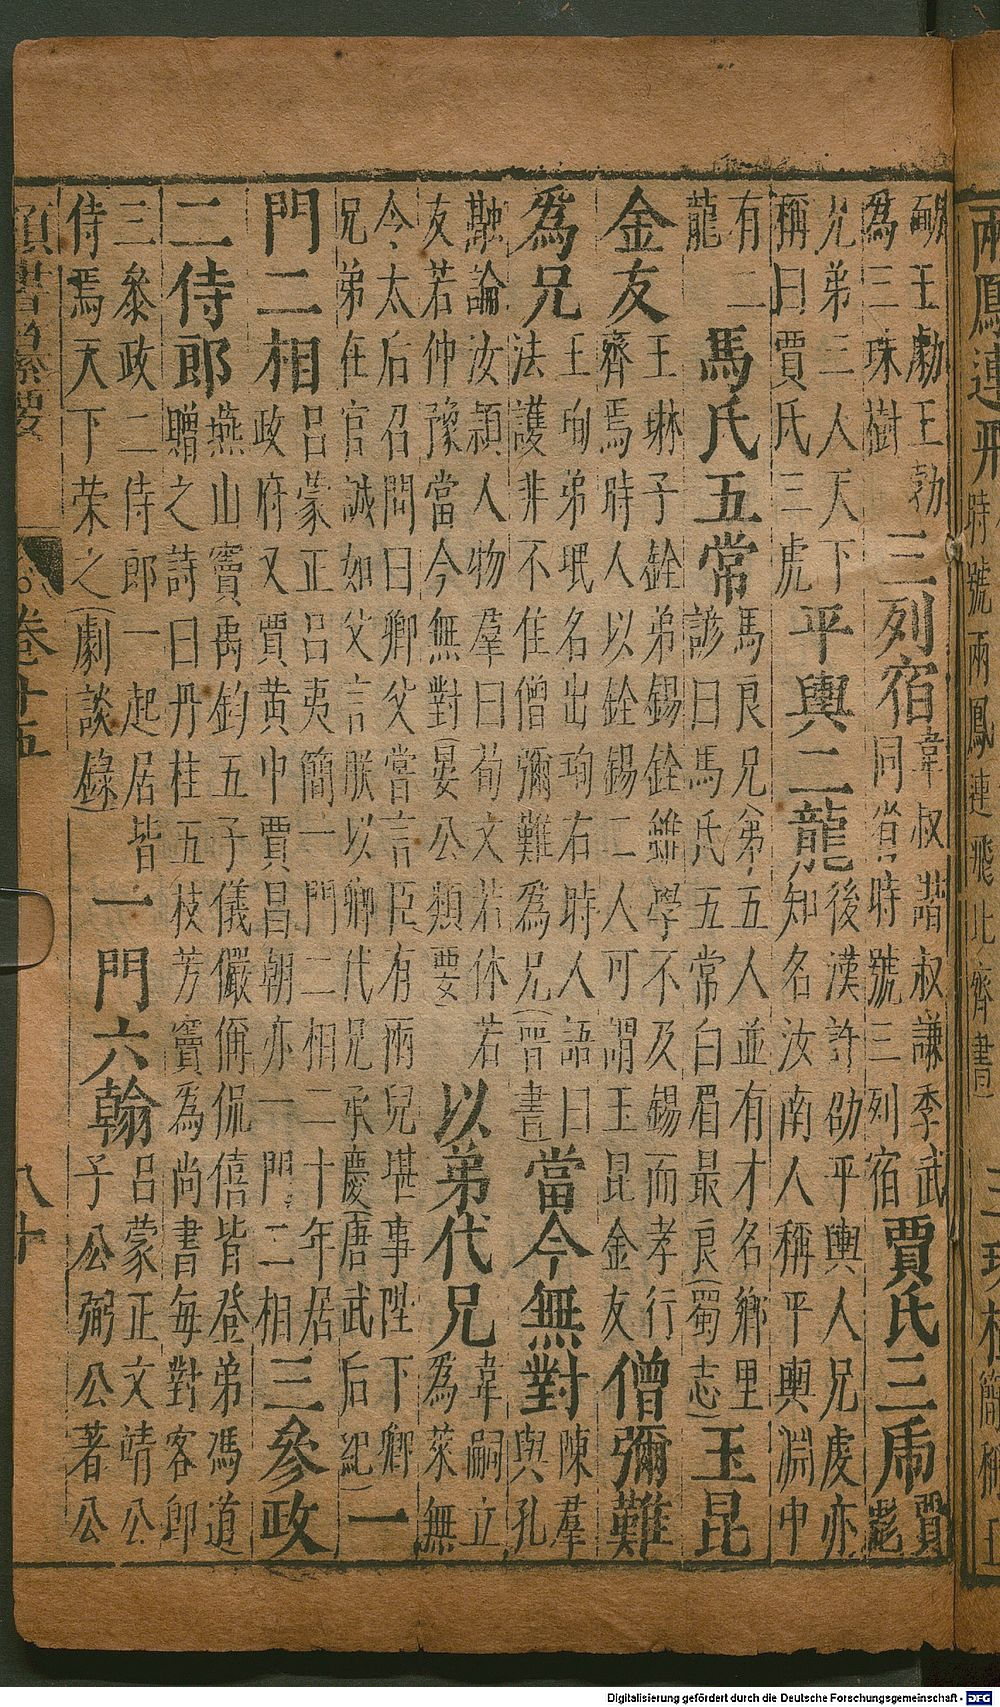 兩鳳連飛時號兩鳳連飛北齊書
勮王勃
為三珠樹
三列宿
韋叔諧叔謙季武
同省時號三列宿
賈氏三虎
賈
彪
兄弟三人天下
稱曰賈氏三虎
平輿二龍
後漢許劭平輿人兄虔亦
知名汝南人稱平輿淵中
有二
龍
馬氏五常
馬良兄弟五人並有才名鄉里
諺曰馬氏五常白眉最良(蜀志)
玉昆
金友
王琳子銓弟錫銓雖學不及錫而孝行
齊焉時人以銓錫二人可謂玉昆金友
僧彌難
為兄
王珣弟珉名出珣右時人語曰
法護非不隹僧彌難為兄(晉書)
當今無對
陳羣
與孔
融論汝潁人物羣曰荀文若休若
友若仲豫當今無對(晏公類要
以弟代兄
韋嗣立
為萊無
今太后召問曰卿父嘗言臣有兩兒堪事陛下卿
兄弟在官誠如父言朕以卿代兄承慶(唐武后紀)
一
門二相
呂蒙正呂夷簡一門二相二十年居
政府又賈黄中賈昌朝亦一門二相
三參政
二侍郎
燕山竇禹鈞五子儀儼侢侃僖皆登弟馮道
贈之詩曰丹桂五枝芳竇為尚書每對客即
三參政二侍郎一起居皆
侍焉天下荣之(劇談錄)
一門六翰
呂蒙正文靖公
子公弼公著公
類書纂要 卷 八十
Digitalisierung gefördert durch die Deutsche Forschungsgemeinschaft - DFG